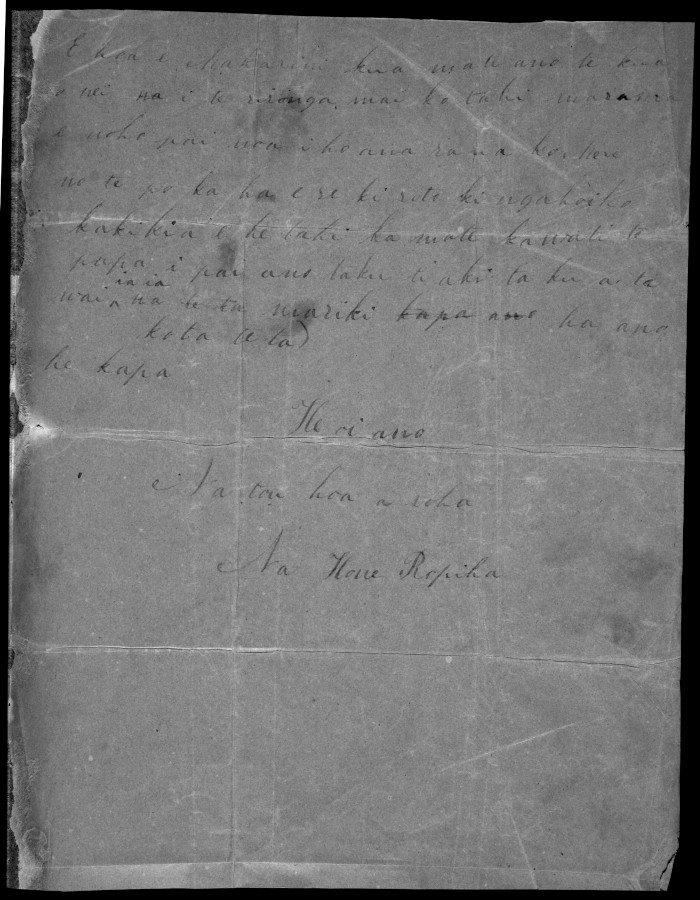 E hoa e Makarini kua mate ano te kua
a nei na i te rironga mai ka tahi marama
e noho pai noa iho ana
no te po ka haere ki roto ki nga hoiho
kakikia e te tahi ka mate ka wati te
papa i pai ano taku tiaki ta ku a ta
iaia
wai na te ta mariki kapa ano ha ano
ko ta te ta)
he kapa
He oi ano
Na tou hoa aroha
Na Hone Ropiha